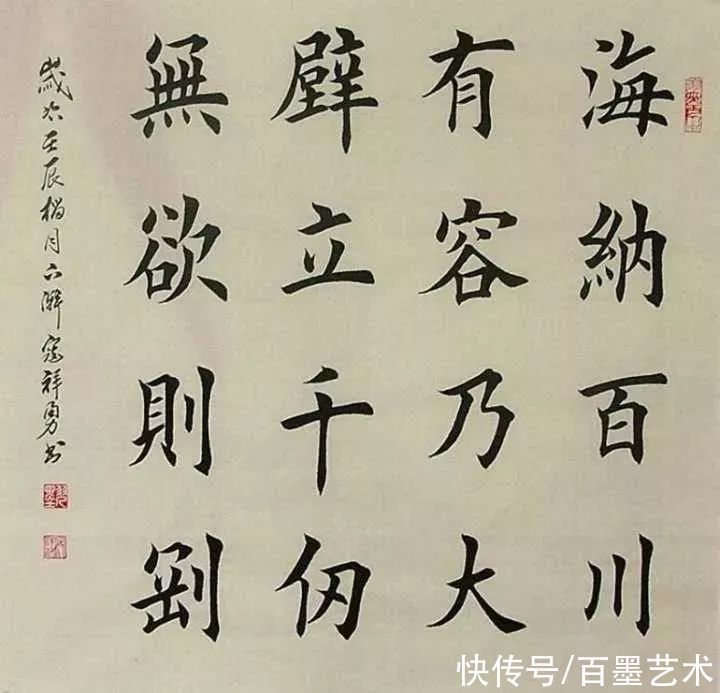 海納百川
有容乃大
壁立千仞
無欲則剛
歲次壬辰榴月寇祥勇书
快传号/百墨艺术